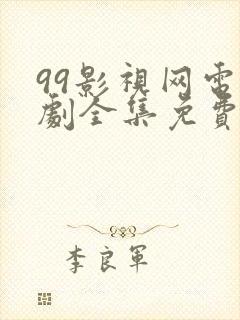 99影視网电
劇全集免費
李良军